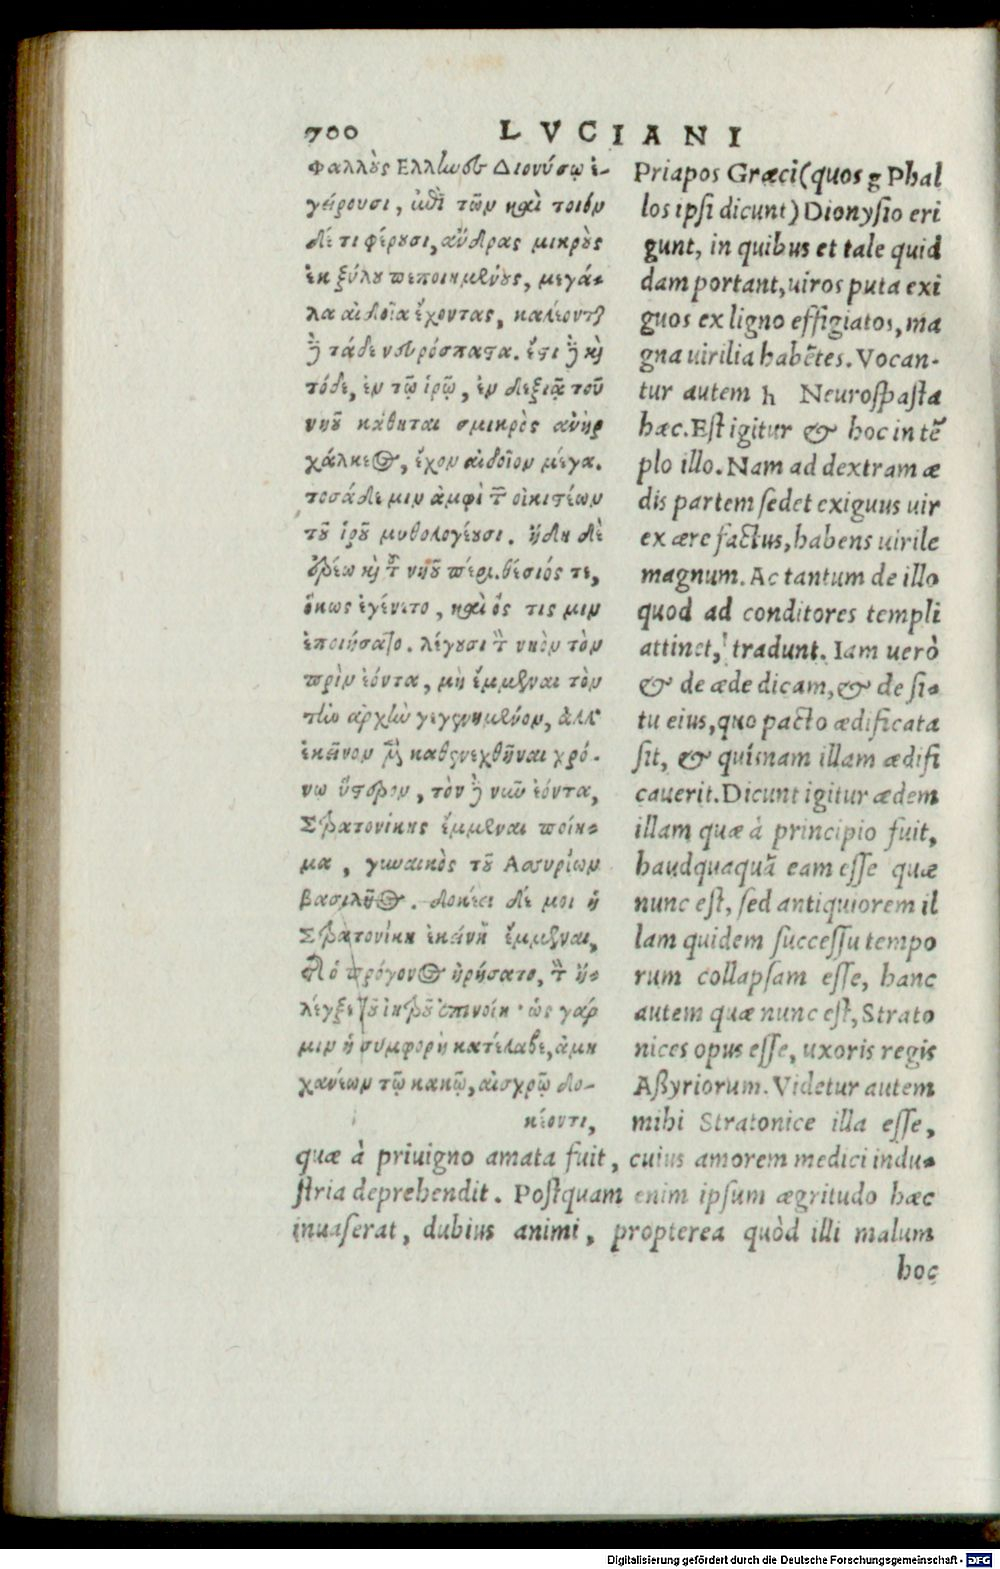 700 LVCIANI
Φαλλοὺς Ελλίωες Διονύσῳ ἐ-
γείρουσι, ἐπὶ τῶν καὶ τοιόν
δέ τι φέρουσι, ἄνδρας μικροὺς
ἐκ ξύλου πεποιημένους, μεγά-
λα αἰδοῖα ἔχοντας, καλέονται
ἢ τάδε νευρόσπαστα. ἔστι ἢ καὶ
τόδε, ἐν τῷ ἱρῷ, ἐν δεξιᾷ τοῦ
νηοῦ κάθηται σμικρὸς ἀνὴρ
χάλκεος, ἔχων αἰδοῖον μέγα.
τοσάδε μιν ἀμφὶ τῶν οἰκιστέων
τοῦ ἱροῦ μυθολογέουσι. ἤδη δὲ
ἐρέω καὶ τοῦ νηοῦ πέρι. θέσιός τε,
ὅκως ἐγένετο, καὶ ὅς τις μιν
ἐποιήσατο. λέγουσι τὸν νηὸν τὸν
πρὶν ἐόντα, μὴ ἔμμεναι τὸν
τὴν ἀρχὴν γεγενημένον, ἀλλ'
ἐκεῖνον μὲν κατενεχθῆναι χρό-
νῳ ὕστερον, τὸν δὲ νῦν ἐόντα,
Στρατονίκης ἔμμεναι ποίη-
μα, γυναικὸς τοῦ Ασσυρίων
βασιλῆος. δοκέει δέ μοι ἡ
Στρατονίκη ἐκείνη ἔμμεναι,
τῆς ὁ πρόγονος ἠρήσατο, τὸν ἤ-
λεγξε τοῦ ἰητροῦ ἐπινοίη· ὡς γάρ
μιν ἡ συμφορὴ κατέλαβε, ἀμη
χανέων τῷ κακῷ, αἰσχρῷ δο-
κέοντι,
Priapos Græci (quos g Phal
los ipsi dicunt) Dionysio eri
gunt, in quibus et tale quid
dam portant, uiros puta exi
guos ex ligno effigiatos, ma
gna uirilia habẽtes. Vocan-
tur autem h Neurospasta
hæc. Est igitur & hoc in tẽ
plo illo. Nam ad dextram æ
dis partem sedet exiguus uir
ex ære factus, habens uirile
magnum. Ac tantum de illo
quod ad conditores templi
attinet, tradunt. Iam uerò
& de æde dicam, & de si-
tu eius, quo pacto ædificata
sit, & quisnam illam ædifi
cauerit. Dicunt igitur ædem
illam quæ à principio fuit,
haudquaquã eam esse quæ
nunc est, sed antiquiorem il
lam quidem successu tempo
rum collapsam esse, hanc
autem quæ nunc est, Strato
nices opus esse, uxoris regis
Aßyriorum. Videtur autem
mihi Stratonice illa esse,
quæ à priuigno amata fuit, cuius amorem medici indu-
stria deprehendit. Postquam enim ipsum ægritudo hæc
inuaserat, dubius animi, propterea quòd illi malum
hoc
Digitalisierung gefördert durch die Deutsche Forschungsgemeinschaft - DFG